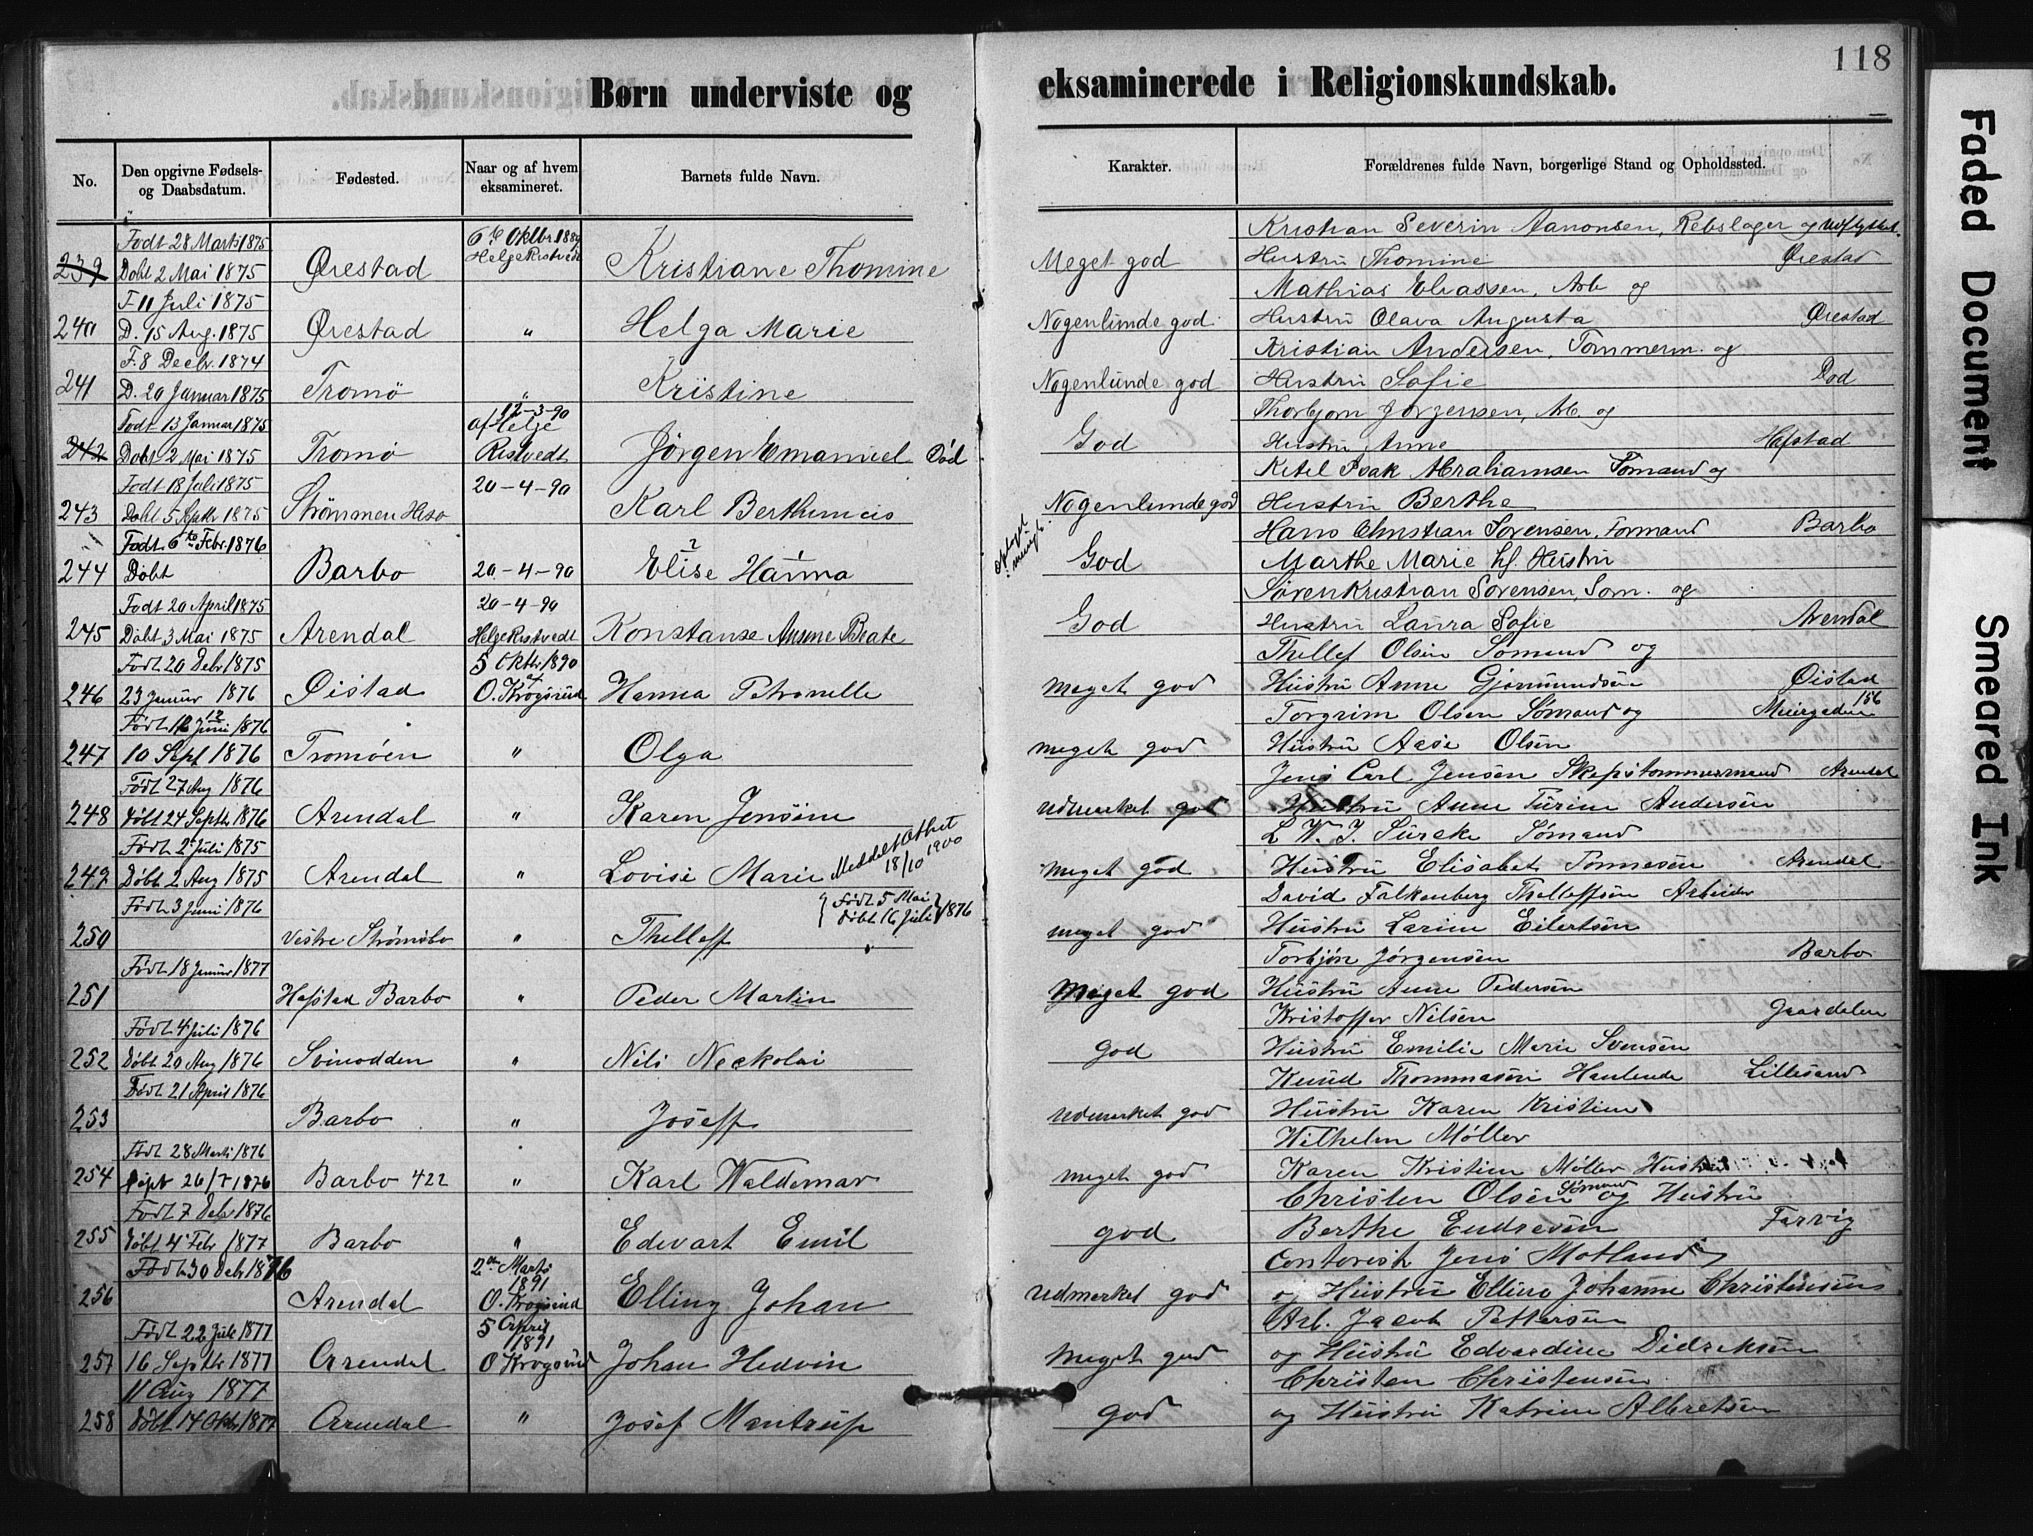 118
Børn underviste og eksaminerede i Religionskundskab.
No. Den opgivne Fødsels- og Daabsdatum. Fødested. Naar og af hvem eksamineret. Barnets fulde Navn. Karakter. Forældrenes fulde Navn, borgerlige Stand og Opholdssted.
Født 28 Marts 1875 6te Oktbr. 1889 Kristian Severin Aanonsen, Rebslager og Udflyttet.
239 Døbt 2 Mai 1875 Ørestad Helge Ristvedt Kristiane Thomine Meget god Hustru Thomine Ørestad
F. 11 Juli 1875 Mathias Eliassen, Arb. og
240 D. 15 Aug. 1875 Ørestad " Helga Marie Nogenlunde god. Hustru Olava Augusta Ørestad
F. 8 Decbr. 1874 Kristian Andersen, Tømmerm. og
241 D. 20 Januar 1875 Tromø " Kristine Nogenlunde god Hustru Sofie Død
Født 13 Januar 1875 12-3-90 af Helge Thorbjørn Jørgensen, Arb. og
242 Døbt 2 Mai 1875 Tromø Ristvedt Jørgen Emanuel Død God Hustru Anne Hafstad
Født 18 Juli 1875 20-4-90 Ketil Isak Abrahamsen Sømand og
243 Døbt 5 Septbr 1875 Strømmen Hisø Karl Nogenlunde god Hustru Berthe
Født 6te Febr. 1876 Hans Christian Sørensen, Formand Barbo
244 Døbt Barbo 20-4-90 Elise Hanna God Marthe Marie hf. Hustru
Født 20 April 1875 20-4-90 Søren Kristian Sørensen, Søm. og
245 Døbt 3 Mai 1875 Arendal Helge Ristvedt Konstanse Anne Beate God Hustru Laura Sofie Arendal
Født 20 Debr 1875 5 Oktbr 1890 af Thellef Olsen Sømand og
246 23 Januar 1876 Øistad O. Krogsund Hanna Petronelle meget god Hustru Anne Gjermundsen Øistad
Født 16 Juni 1876 Torgrim Olsen Sømand og 156
247 10 Sept 1876 Tromøen " Olga meget god Hustru Aase Olsen
Født 27 Aug 1876 Jens Carl Jensen Skepstømmermand Arendal
248 døbt 24 Septbr 1876 Arendal " Karen Jensine udmerket god Hustru Anne Turine Andersen
Født 2 Juli 1875 Sømand
249 Døbt 2 Aug 1875 Arendal " Lovise Marie Meddelt Attest 18/10 1900 meget god Hustru Elisabet Tønnesen Arendal
Født 3 Juni 1876 { Født 5 Mai døbt 16 Juli } 1876 David Falkenberg Thellefsen Arbeider
250 Vestre Strømsbo " Thelleff meget god Hustru Larine Eilertsen
Født 18 Januar 1877 Torbjøn Jørgensen Barbo
251 Hafstad Barbo " Peder Martin Meget god Hustru Anne Pedersen
Født 4 Juli 1876 Kristoffer Nilsen Gaardalen
252 Døbt 20 Aug 1876 Svinodden " Nils Neckolai god Hustru Emilie Marie Svensen
Født 21 April 1876 Knud Thommasen Lillesand
253 Barbo " Joseff udmerket god Hustru Karen Kristine
Født 28 Marts 1876 Wilhelm Møller
254 26/7 1876 Barbo 422 " Karl Waldemar meget god Karen Kristine Møller Hustru
Født 7 Debr 1876 Christen Olsen Sømand og Hustru
255 døbt 4 Febr 1877 Barbo " Edevart Emil god Berthe Endresen Farvig
Født 30 Debr 1876 2den Marts 1891 Contorist Jens Motland
256 Arendal O. Krogsund Elling Johan udmerket god og Hustru Elline Johanne Christensen
Født 22 Juli 1877 5 April 1891 Arb. Jacob Pettersen
257 16 Septbr 1877 Arendal O Krogsund Johan Hedvin Meget god og Hustru Edvardine Didreksen
11 Aug 1877 Christen Christensen
258 døbt 14 Oktbr 1877 Arendal " Josef Mentrup god og Hustru Katrine Albretsen
Faded Document
Smeared Ink